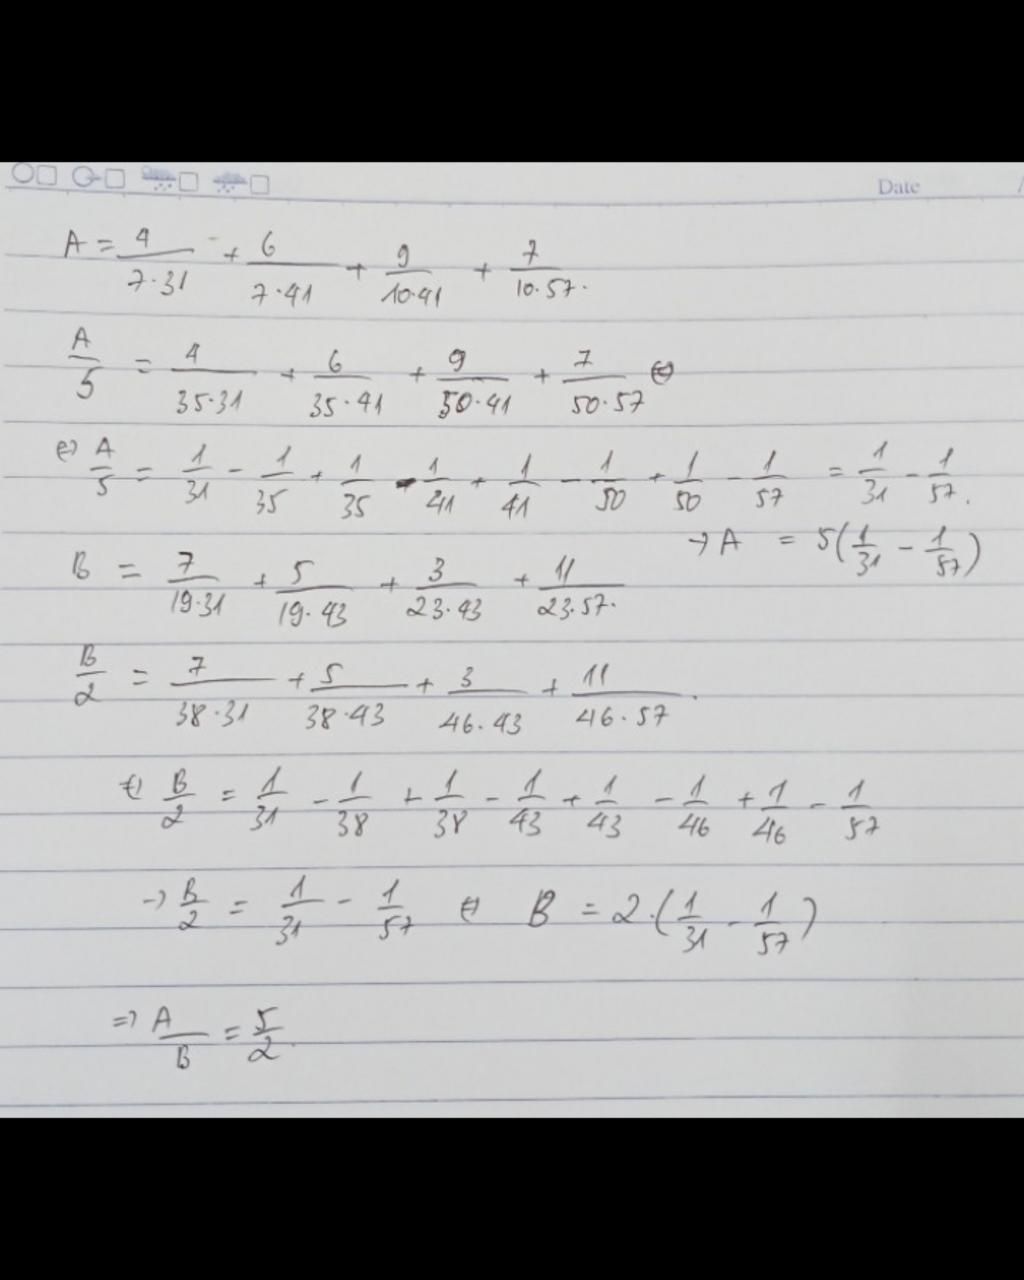 Date
A = 4/7·31 + 6/7·41 + 9/10·41 + 7/10·57.
A/5 = 4/35·31 + 6/35·41 + 9/50·41 + 7/50·57 ⇔
⇔ A/5 = 1/31 - 1/35 + 1/35 - 1/41 + 1/41 - 1/50 + 1/50 - 1/57 = 1/31 - 1/57.
→ A = 5(1/31 - 1/57)
B = 7/19·31 + 5/19·43 + 3/23·43 + 11/23·57.
B/2 = 7/38·31 + 5/38·43 + 3/46·43 + 11/46·57.
⇔ B/2 = 1/31 - 1/38 + 1/38 - 1/43 + 1/43 - 1/46 + 1/46 - 1/57
→ B/2 = 1/31 - 1/57 ⇔ B = 2·(1/31 - 1/57)
⇒ A/B = 5/2